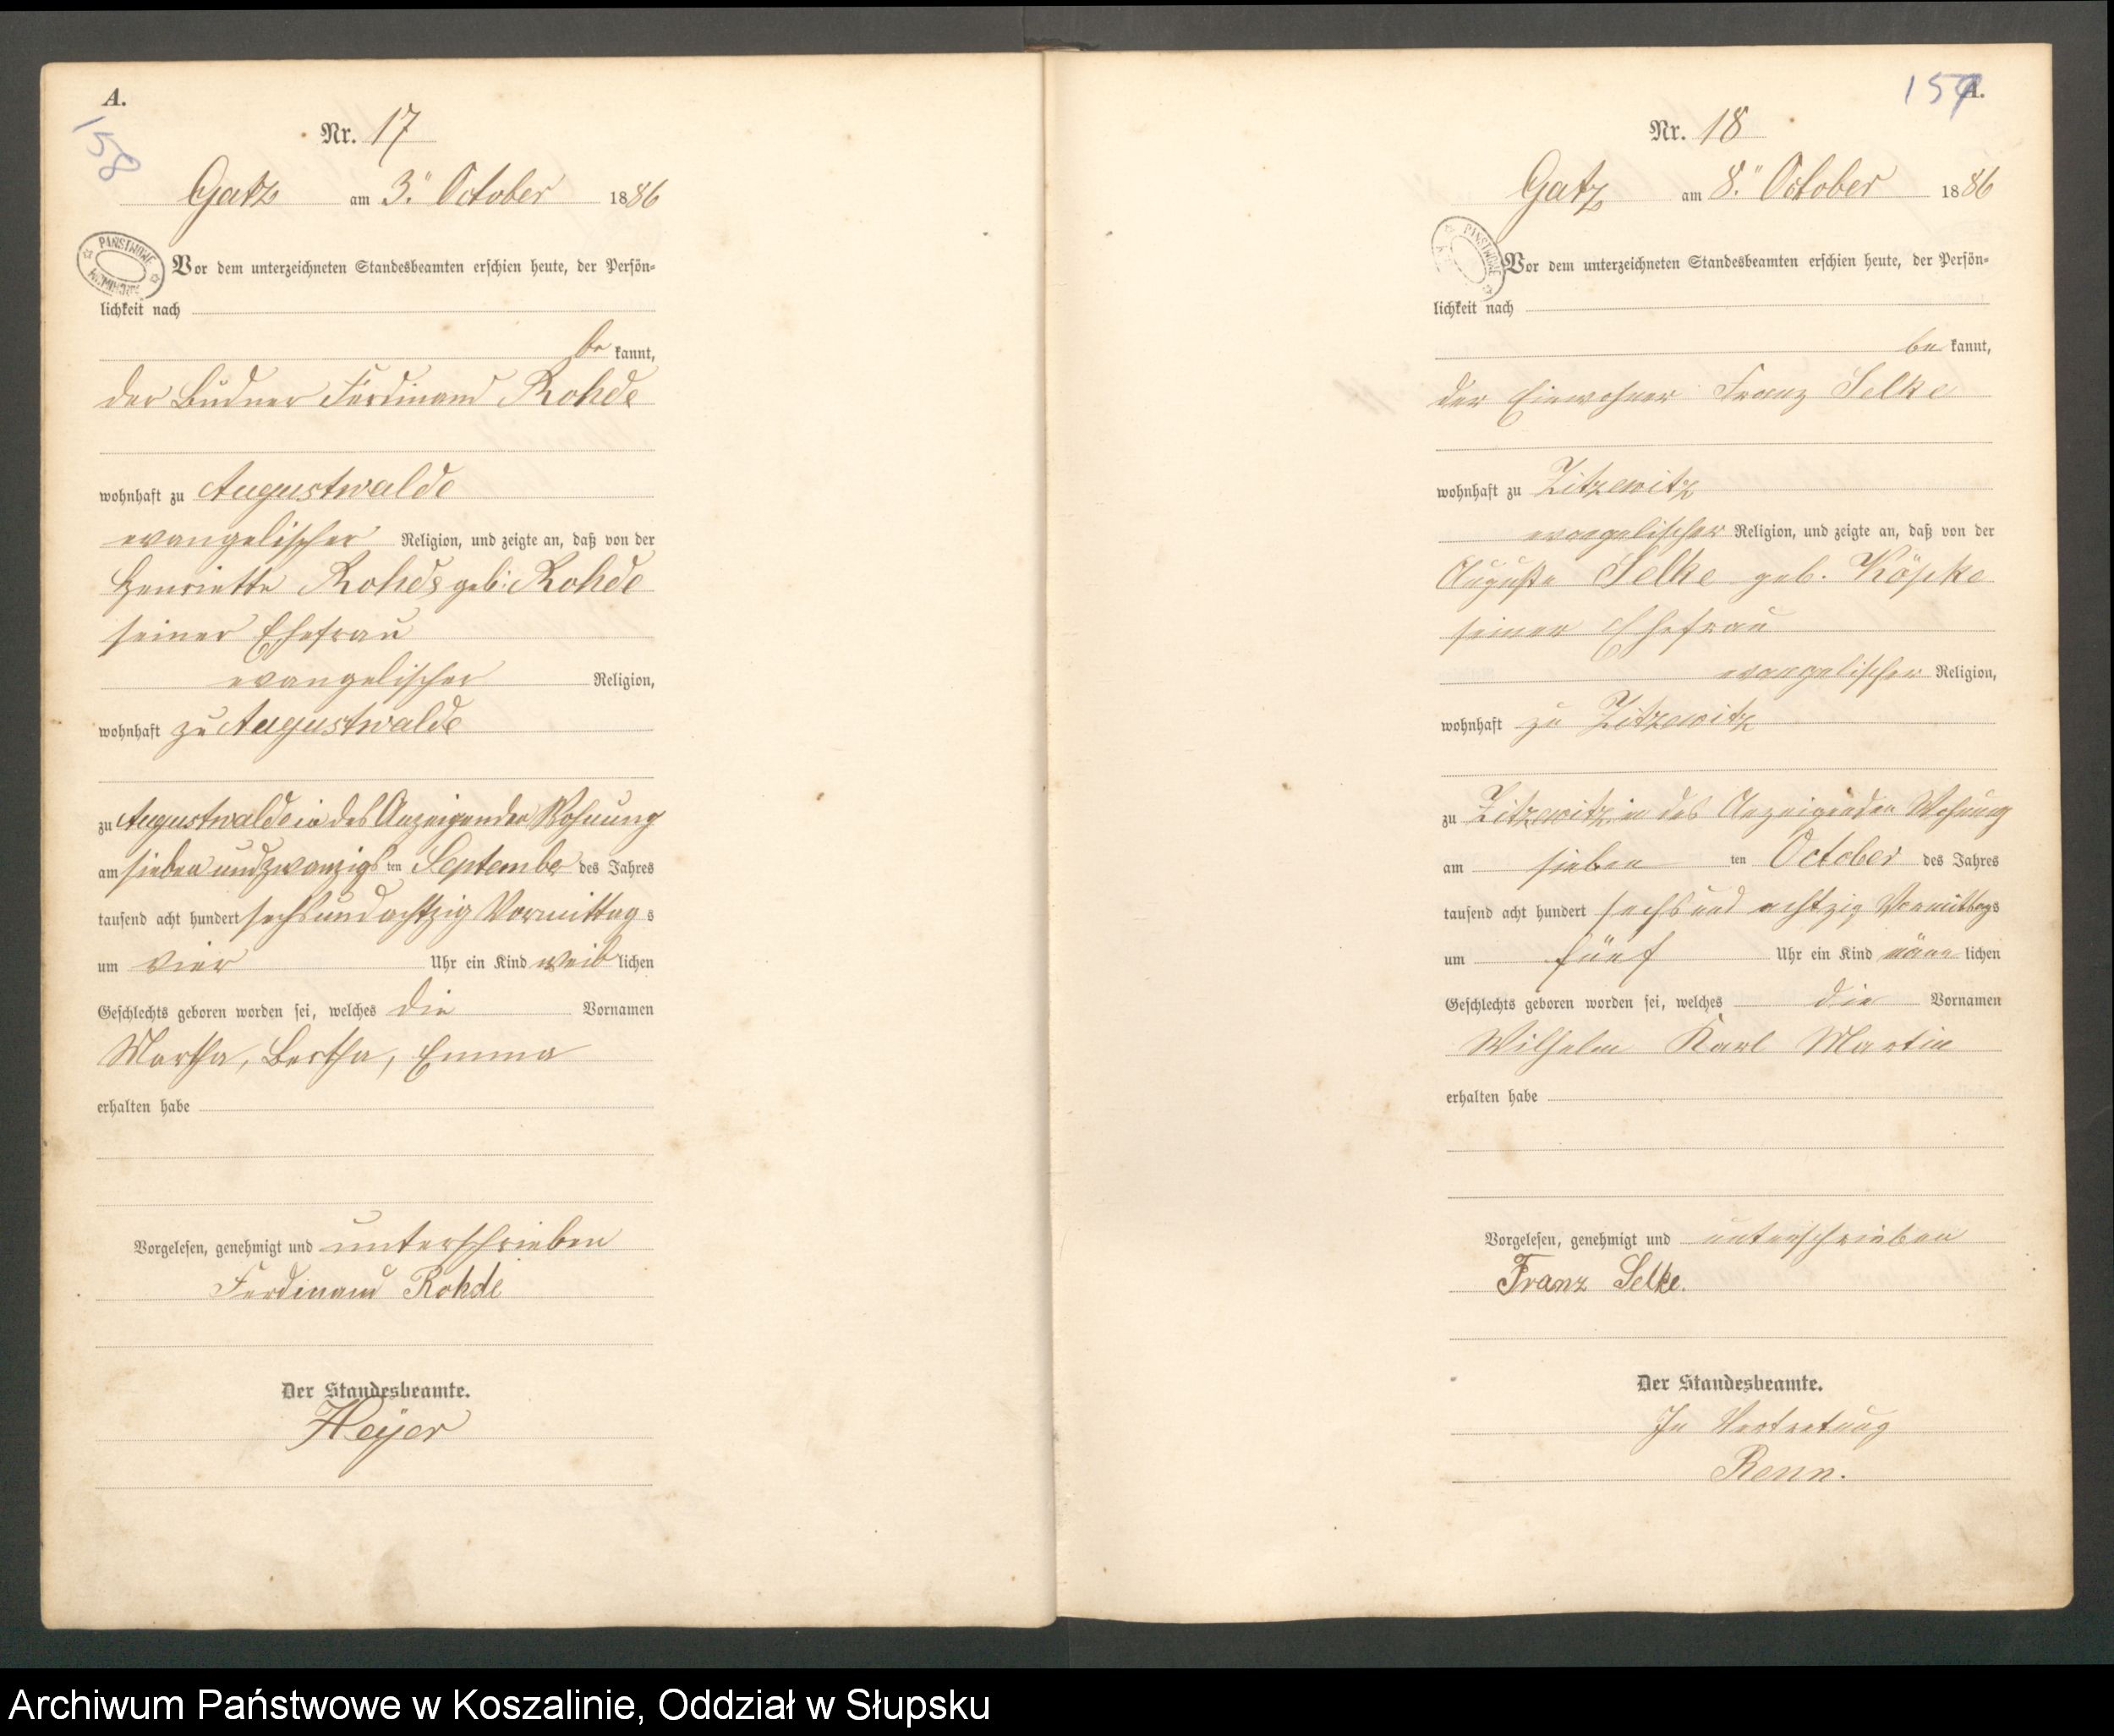 A.
158
Nr. 17
Gatz am 3. October 1886
PAŃSTWOWE ARCHIWUM
Vor dem unterzeichneten Standesbeamten erschien heute, der Persön-
lichkeit nach
be kannt,
der Büdner Ferdinand Rohde
wohnhaft zu Augustwalde
evangelischer Religion, und zeigte an, daß von der
Henriette Rohde geb. Rohde
seiner Ehefrau
evangelischer Religion,
wohnhaft zu Augustwalde
zu Augustwalde in des Anzeigenden Wohnung
am sieben und zwanzigsten September des Jahres
tausend acht hundert sechs und achtzig Vormittags
um vier Uhr ein Kind weiblichen
Geschlechts geboren worden sei, welches die Vornamen
Martha, Bertha, Emma
erhalten habe
Vorgelesen, genehmigt und unterschrieben
Ferdinand Rohde
Der Standesbeamte.
Heyer
159
A.
Nr. 18
Gatz am 8. October 1886
PAŃSTWOWE
Vor dem unterzeichneten Standesbeamten erschien heute, der Persön-
lichkeit nach
be kannt,
der Einwohner Franz Selke
wohnhaft zu Zitzewitz
evangelischer Religion, und zeigte an, daß von der
Auguste Selke geb. Köpke
seiner Ehefrau
evangelischer Religion,
wohnhaft zu Zitzewitz
zu Zitzewitz in des Anzeigenden Wohnung
am sieben ten October des Jahres
tausend acht hundert sechs und achtzig Vormittags
um fünf Uhr ein Kind männlichen
Geschlechts geboren worden sei, welches die Vornamen
Wilhelm Karl Martin
erhalten habe
Vorgelesen, genehmigt und unterschrieben
Franz Selke.
Der Standesbeamte.
In Vertretung
Renn.
Archiwum Państwowe w Koszalinie, Oddział w Słupsku